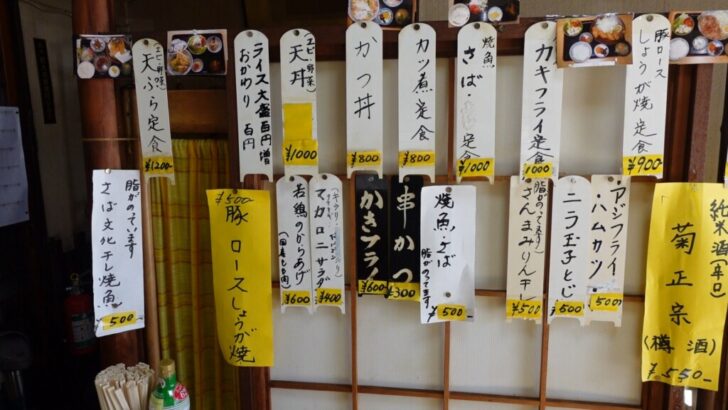 エビ・野菜
天ぷら定食
¥1200-
ライス大盛百円増
おかわり 百円
エビ・野菜
天丼
¥1000
かつ丼
¥800
カツ煮定食
¥800
焼魚
さば 定食
¥1000
カキフライ定食
1000
豚ロース
しょうが焼定食
¥900
脂がのっています
さば文化干し焼魚
500
¥500
豚ロースしょうが焼
若鶏のからあげ
¥600
マカロニサラダ
¥400
かきフライ
¥600
串かつ
500
焼魚・さば
脂がのってます
500-
脂がのってます
さんまみりん干し
¥500
ニラ玉子とじ
500
アジフライ
・ハムカツ
500
純米酒(辛口)
菊正宗
(樽酒)
¥550-